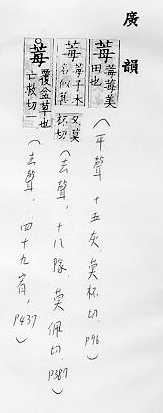 廣韻
莓 莓莓美田也
（平聲，十五灰，莫杯切，P96）
莓 莓子木名似葚又莫杯切
（去聲，十八隊，莫佩切，P387）
莓 覆盆草也亡救切一
（去聲，四十九宥，P437）